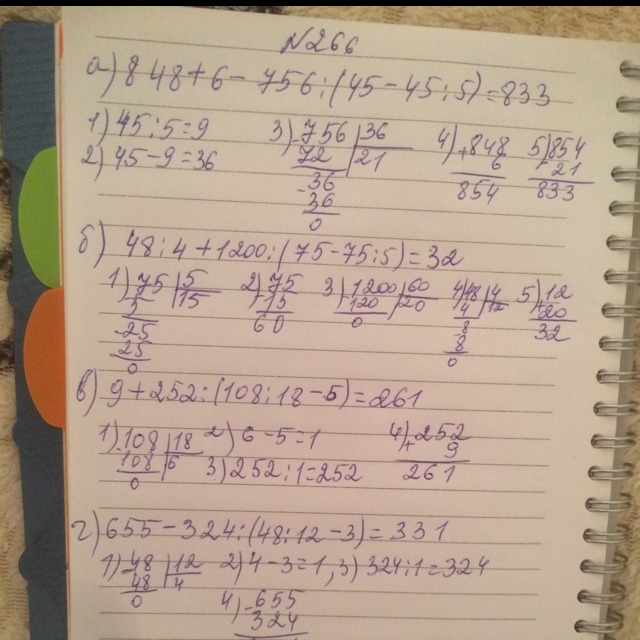 №266
а) 848+6-756:(45-45:5)=833
1) 45:5=9 3) 756 | 36 4) +848 5) 854
2) 45-9=36 72 | 21 6 21
-36 854 833
36
0
б) 48:4+1200:(75-75:5)=32
1) 75 | 5 2) 75 3) 1200 | 60 4) 48 | 4 5) 12
5 | 15 -15 120 | 20 4 | 12 +20
-25 60 0 8 32
25 8
0 0
в) 9+252:(108:18-5)=261
1) 108 | 18 2) 6-5=1 4) +252
108 | 6 3) 252:1=252 9
0 261
г) 655-324:(48:12-3)=331
1) 48 | 12 2) 4-3=1, 3) 324:1=324
48 | 4 4) -655
0 324